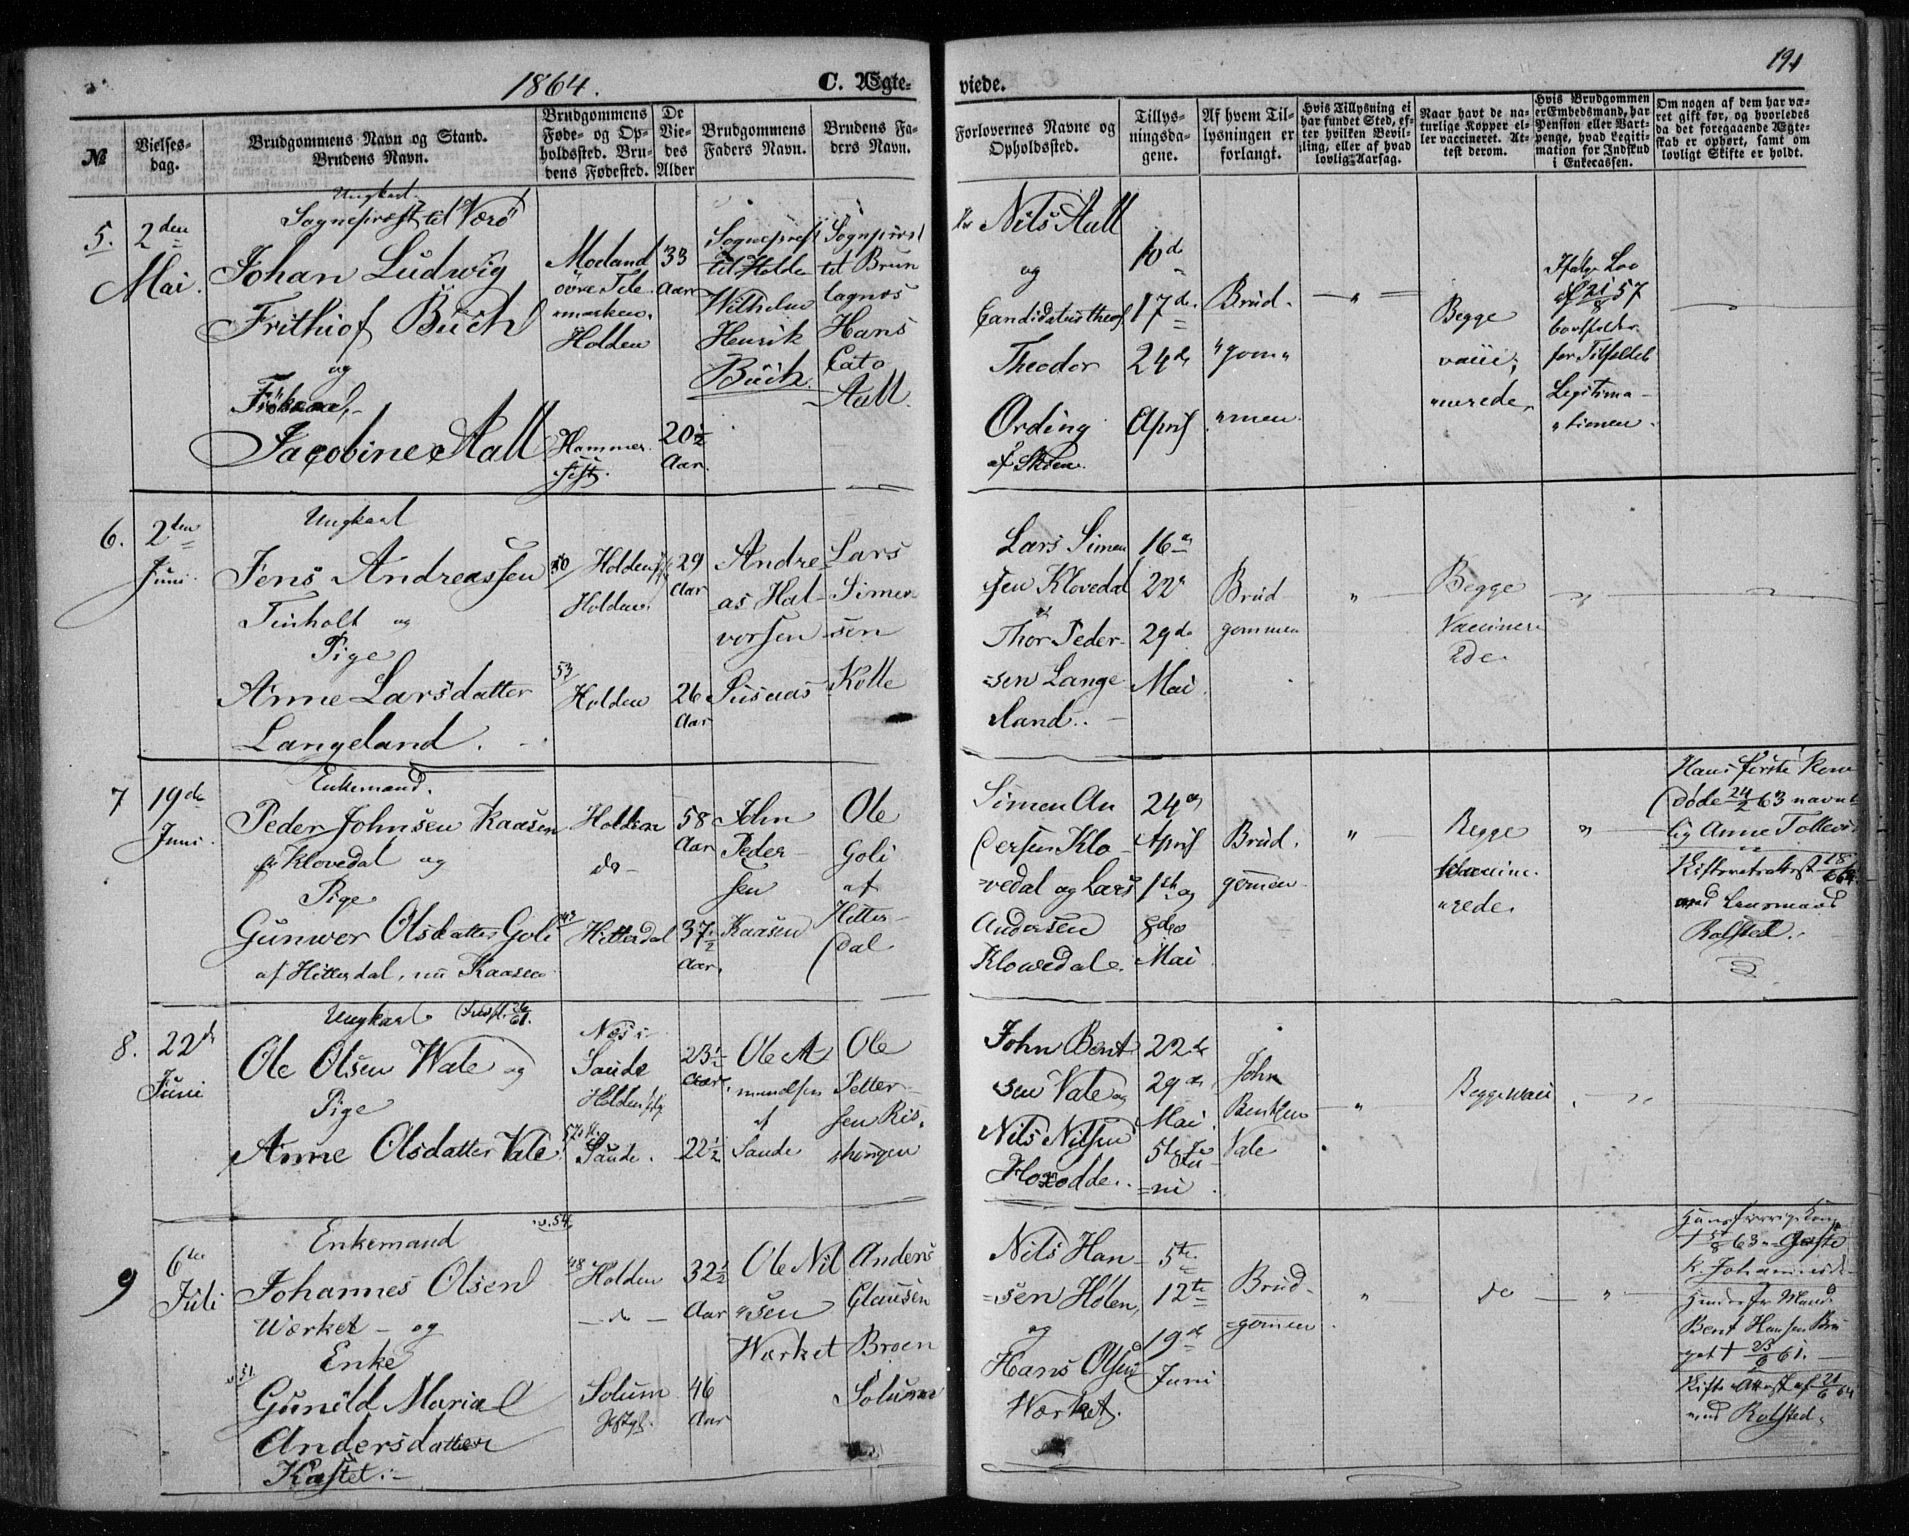 1864.
C. Ægte-
viede.
191
№
Vielses-
dag.
Brudgommens Navn og Stand.
Brudens Navn.
Brudgommens
Føde- og Op-
holdssted. Bru-
dens Fødested.
De
Vie-
des
Alder
Brudgommens
Faders Navn.
Brudens Fa-
ders Navn.
Forlovernes Navne og
Opholdssted.
Tillys-
ningsda-
gene.
Af hvem Til-
lysningen er
forlangt.
Hvis Tillysning ei
har fundet Sted, ef-
ter hvilken Bevil-
ling, eller af hvad
lovlig Aarsag.
Naar havt de na-
turlige Kopper el-
ler vaccineret. At-
test derom.
Hvis Brudgommen
er Embedsmand, har
Pension eller Vart-
penge, hvad Legiti-
mation for Indskud
i Enkecassen.
Om nogen af dem har væ-
ret gift før, og hvorledes
da det foregaaende Ægte-
skab er ophørt, samt om
lovligt Skifte er holdt.
5.
2den
Mai.
Ungkarl
Sogneprest til Værö
Johan Ludwig
Frithiof Buch
og
Fröken
Jacobine Aall
Moland
övre Tele
marken.
Holden
Hammer
fest.
33
Aar
20½
Aar.
Sogneprest
til Holden
Wilhelm
Henrik
Buch.
Sogneprest
til Brun
lagnes
Hans
Cato
Aall.
Nils Aall
og
Candidatus theol
Theodor
Ording
af Skien.
10de
17de
24de
April
Brud-
"gom"
"men.
"
Begge
vacci,
"nerede,
Ifølge Lov
af 21/8 57
bortfalder
for Tilfældet
Legitima-
"tionen.
6.
2den
Juni.
Ungkarl
Jens Andreassen
Tinholt og
Pige
Anne Larsdatter
Langeland.
Holden
Holden.
53/
Holden
29
Aar
26
Aar
Andre
as Hal-
vorsen
Susaas
Lars
Simen
sen
Kolle
Lars Simen
sen Klovedal
Thor Peder-
=sen Lange
land.
16de
22de
29de
Mai.
Brud
gommen
"
Begge
Vaccinere
de
"
7
19de
Juni.
Enkemand.
Peder Johnsen Kaasen
Klovedal og
Pige
Gunwer Olsdatter Goli
af Hitterdal, nu Kaasen
Holden
do-
Hitterdal
58
Aar
37½
Aar.
John
Peder-
sen
Kaasen
Ole
Goli
af
Hitter-
dal
Simen An
dersen Klo-
=vedal og Lars
Andersen
Klovedal.
24de
April
1ste og
8de
Mai
Brud.
gommen
"
Begge
vaccine.
"rede.
"
Hans første Kone
døde 24/2 63 navn
lig Anne
Skifteattest
Lensmand
Rolfsted.
8.
22de
Juni
Ungkarl
Ole Olsen Wale og
Pige
Anne Olsdatter Vale
Næs i
Saude
Holden
Saude.
23½
Aar.
22½
Ole A
mundsen
af
Saude
Ole
Petter-
sen Ris-
John Bent
sen Vale og
Nils Nilsen
Hoxodde.
22de
29de
Mai.
5te Ju
=ni.
John
Bentsen
Vale
"
Begge vacci
"
9
6te
Juli
Enkemand
Johannes Olsen
Wærket - og
Enke
Gunild Maria
Andersdatter
Kastet.
v.54.
Holden
- do -
Solum
32½
Aar
46
Aar
Ole Nil
"sen
Wærket
Anders
Clausen
Broen
Solum
Nils Han-
=sen Holen,
og
Hans Olsen
Wærket.
5te
12te
19de
Juni
Brud-
=gommen
"
do
"
Hans forrige Kone
† 5/8 63
Johannesd
Hendes fr Mand
Bent Hansen
† 25/9 61.
Skifte Attest af 21/6 64
Rolfsted.